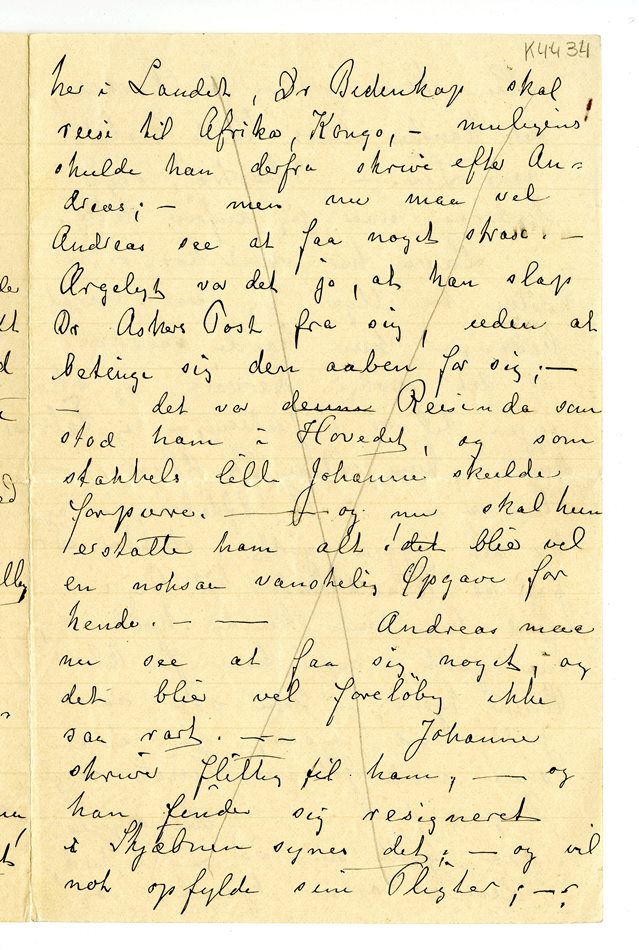 K4434
her i Landet, Dr Bedenkap skal
reise til Afrika, Kongo, – muligens
skulde han derfra skrive efter An-
dreas; – men nu maa vel
Andreas see at faa noget strax. –
Ærgeligt var det jo, at han slap
Dr Askers Post fra sig, uden at
betinge sig den aaben for sig; –
– det var denne Reisen da som
stod ham i Hovedet, og som
stakkels lille Johanne skulde
forpurre. — og nu skal hun
erstatte ham alt! det blir vel
en noksaa vanskelig Opgave for
hende. – — Andreas maa
nu see at faa sig noget, og
det blir vel foreløbig ikke
saa rart. — Johanne
skriver flittig til ham, — og
han finder sig resigneret
i Skjæbnen synes det; – og vil
nok opfylde sine Pligter; –